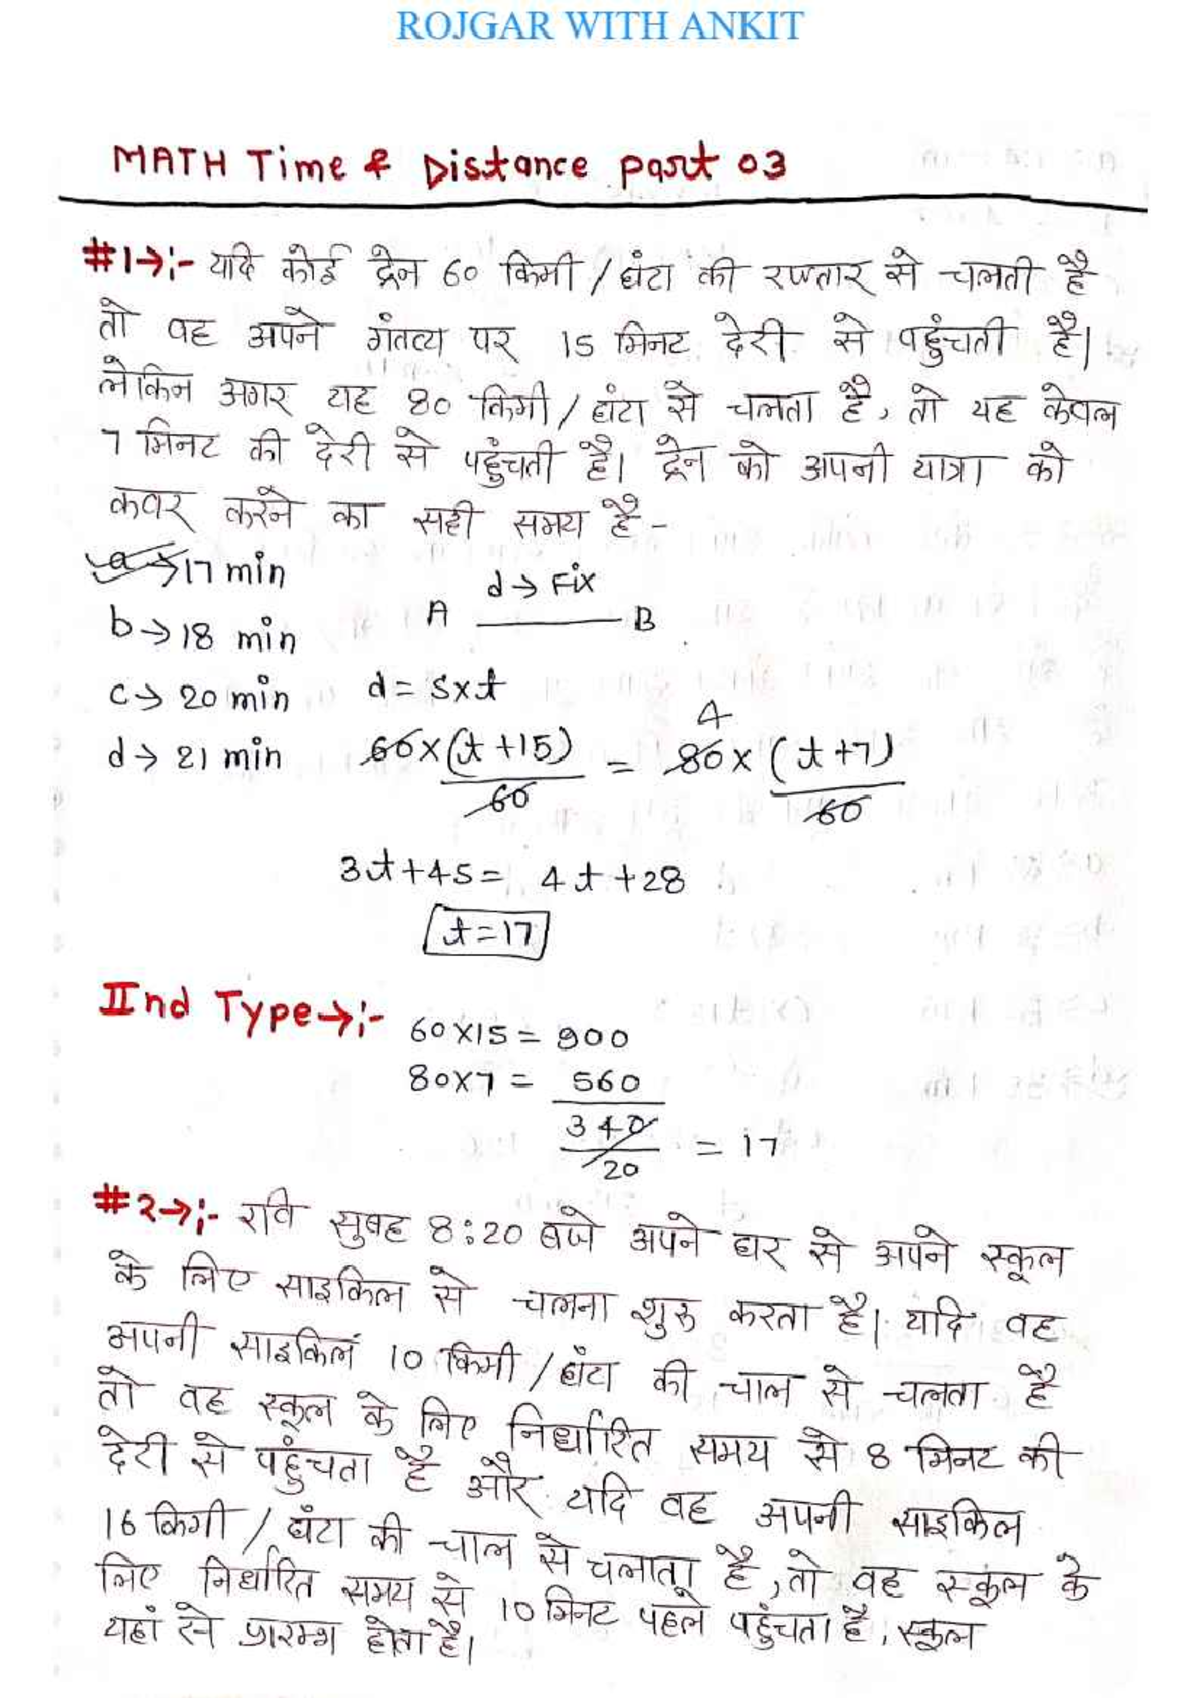 ROJGAR WITH ANKIT
MATH Time & Distance part 03
#1→:- यदि कोई ट्रेन 60 किमी / घंटा की रफ्तार से चलती है
तो वह अपने गंतव्य पर 15 मिनट देरी से पहुंचती है।
लेकिन अगर यह 80 किमी / घंटा से चलता है, तो यह केवल
7 मिनट की देरी से पहुंचती है। ट्रेन को अपनी यात्रा को
कवर करने का सही समय है -
a → 17 min
d → Fix
A ——— B
b → 18 min
c → 20 min
d = s×t
d → 21 min
60×(t+15)/60 = 80×(t+7)/60
4
3t+45 = 4t+28
t=17
IInd Type→:-
60×15 = 900
80×7 = 560
340/20 = 17
#2→:- रवि सुबह 8:20 बजे अपने घर से अपने स्कूल
के लिए साइकिल से चलना शुरू करता है। यदि वह
अपनी साइकिल 10 किमी / घंटा की चाल से चलता है
तो वह स्कूल के लिए निर्धारित समय से 8 मिनट की
देरी से पहुंचता है और यदि वह अपनी साइकिल
16 किमी / घंटा की चाल से चलाता है, तो वह स्कूल के
लिए निर्धारित समय से 10 मिनट पहले पहुंचता है, स्कूल
यहां से प्रारम्भ होता है।